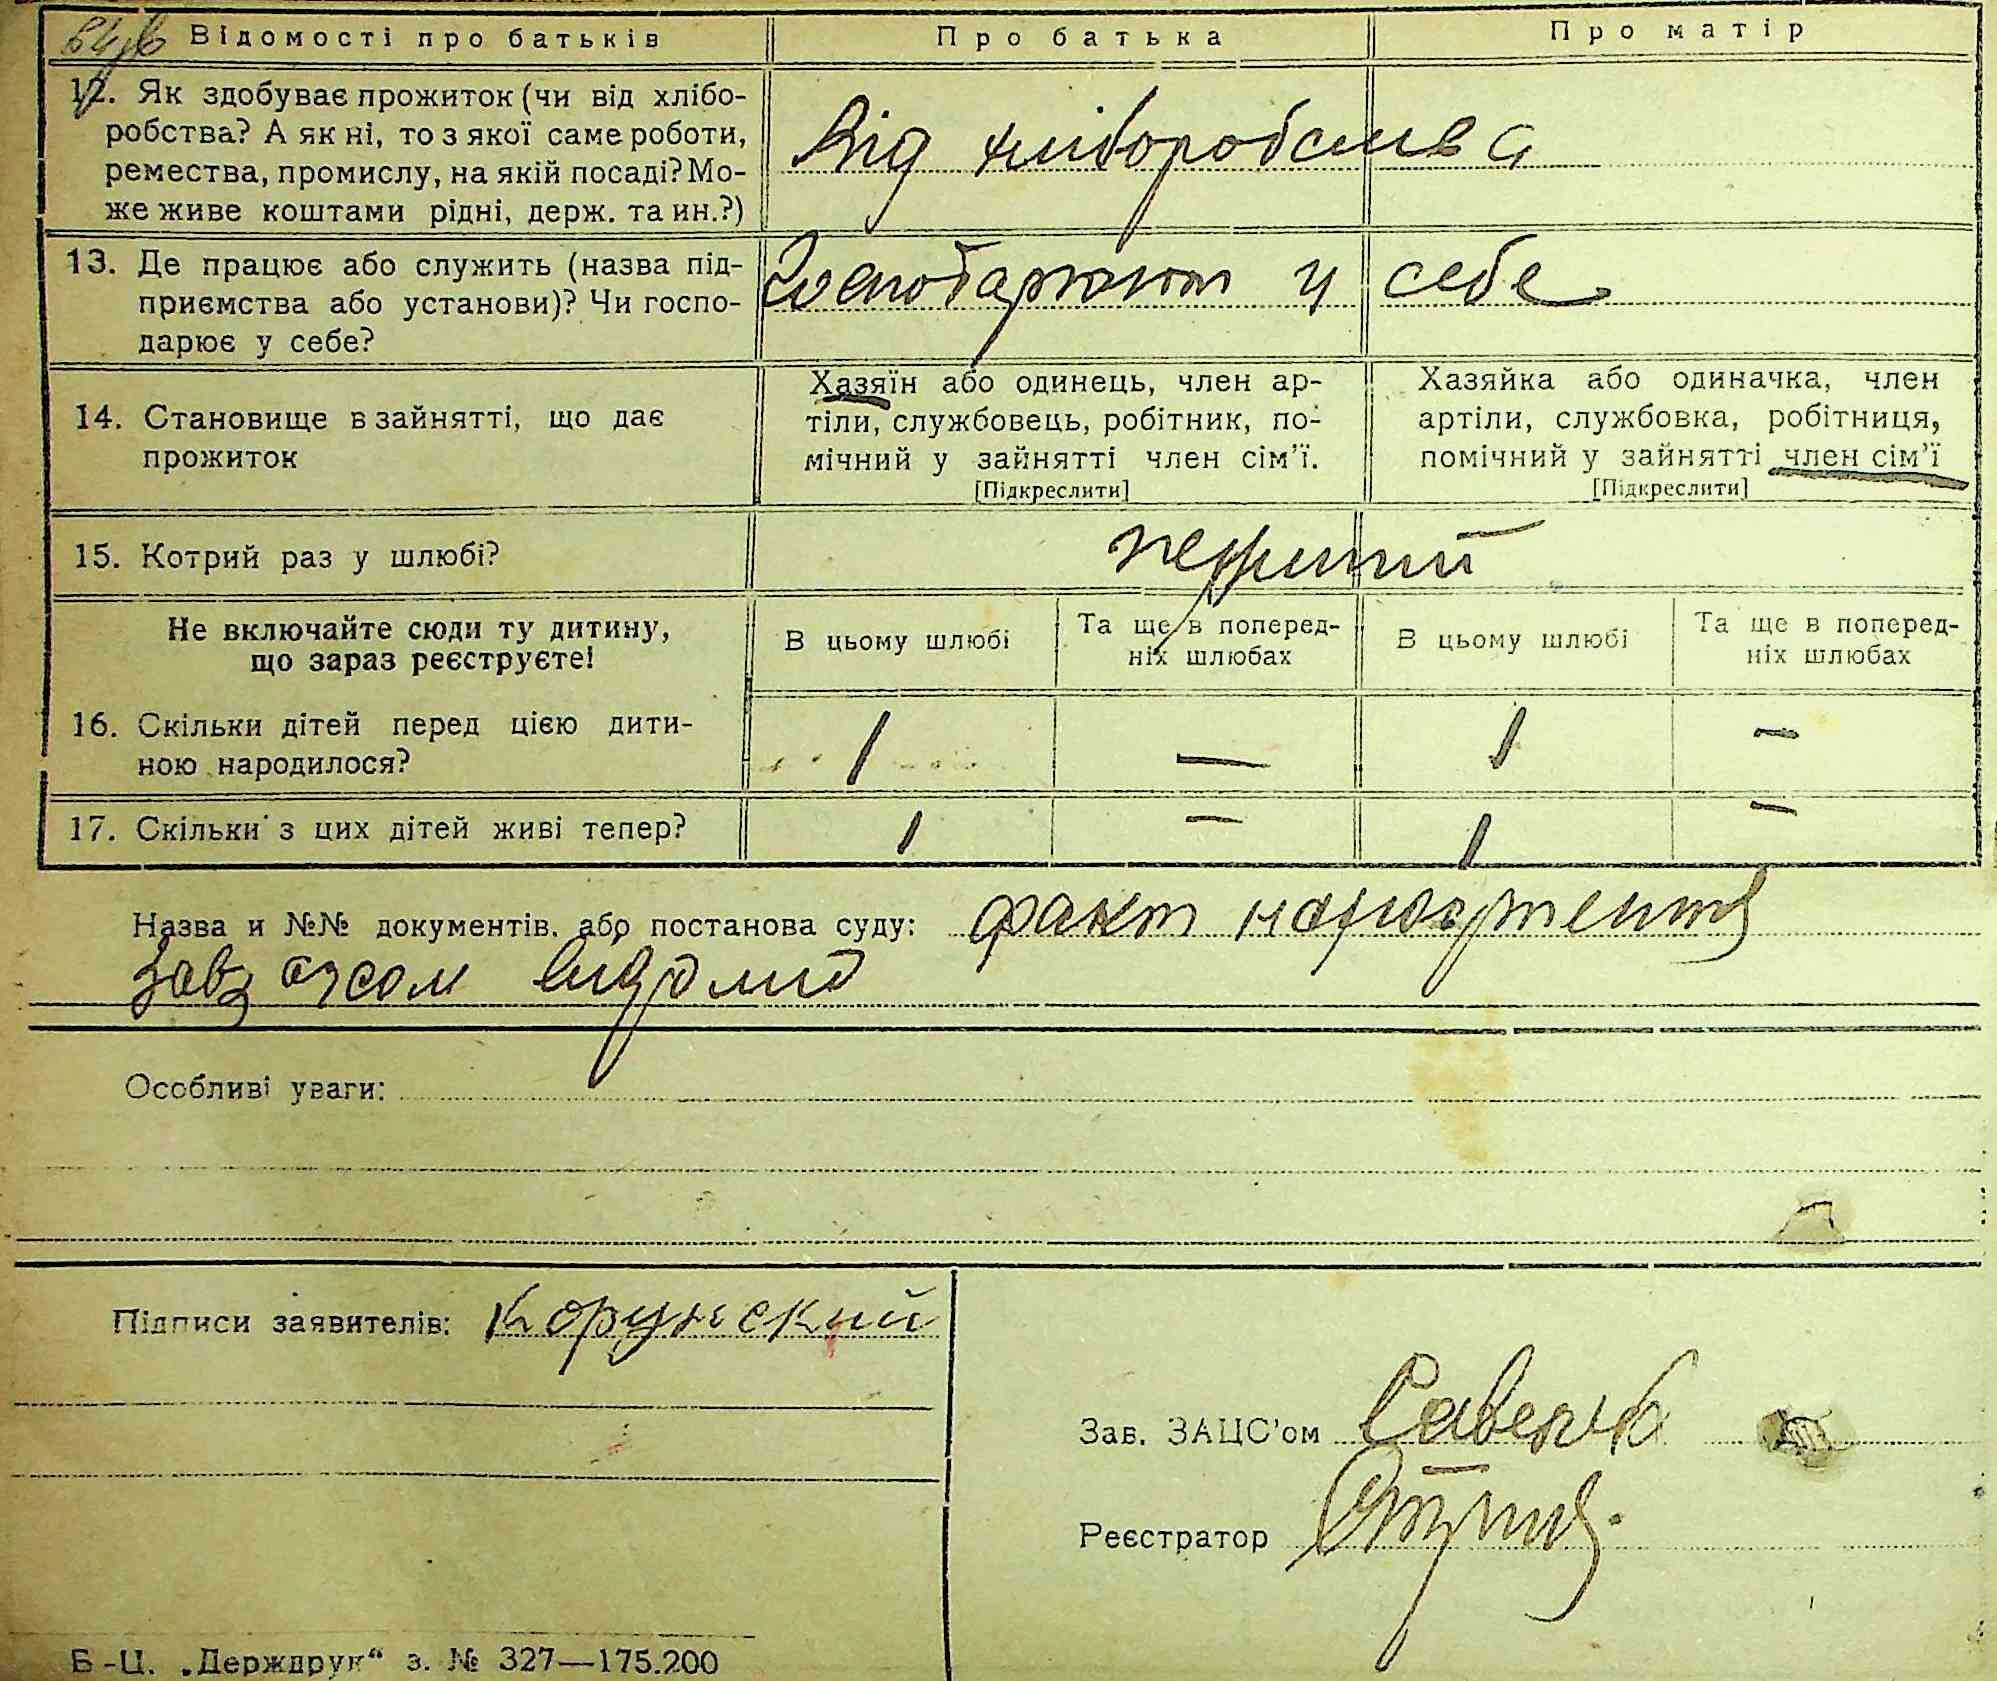 Відомості про батьків Про батька Про матір
12. Як здобуває прожиток (чи від хлібо-
робства? А як ні, то з якої саме роботи,
ремества, промислу, на якій посаді? Мо-
же живе коштами рідні, держ. та ин.?)
Від хліборобства
13. Де працює або служить (назва під-
приємства або установи)? Чи госпо-
дарює у себе?
Господарюют у себе
14. Становище в зайнятті, що дає
прожиток
Хазяїн або одинець, член ар-
тіли, службовець, робітник, по-
мічний у зайнятті член сім'ї.
[Підкреслити]
Хазяйка або одиначка, член
артіли, службовка, робітниця,
помічний у зайнятті член сім'ї
[Підкреслити]
15. Котрий раз у шлюбі?
перший
Не включайте сюди ту дитину,
що зараз реєструєте!
В цьому шлюбі
Та ще в поперед-
ніх шлюбах
В цьому шлюбі
Та ще в поперед-
ніх шлюбах
16. Скільки дітей перед цією дити-
ною народилося?
1 — 1 —
17. Скільки з цих дітей живі тепер?
1 — 1 —
Назва и №№ документів, або постанова суду: факт народження
Завзагсом відомий
Особливі уваги:
Підписи заявителів: Корунский
Зав. ЗАЦС'ом Савенко
Реєстратор
Б-Ц. „Держдрук“ з. № 327—175.200